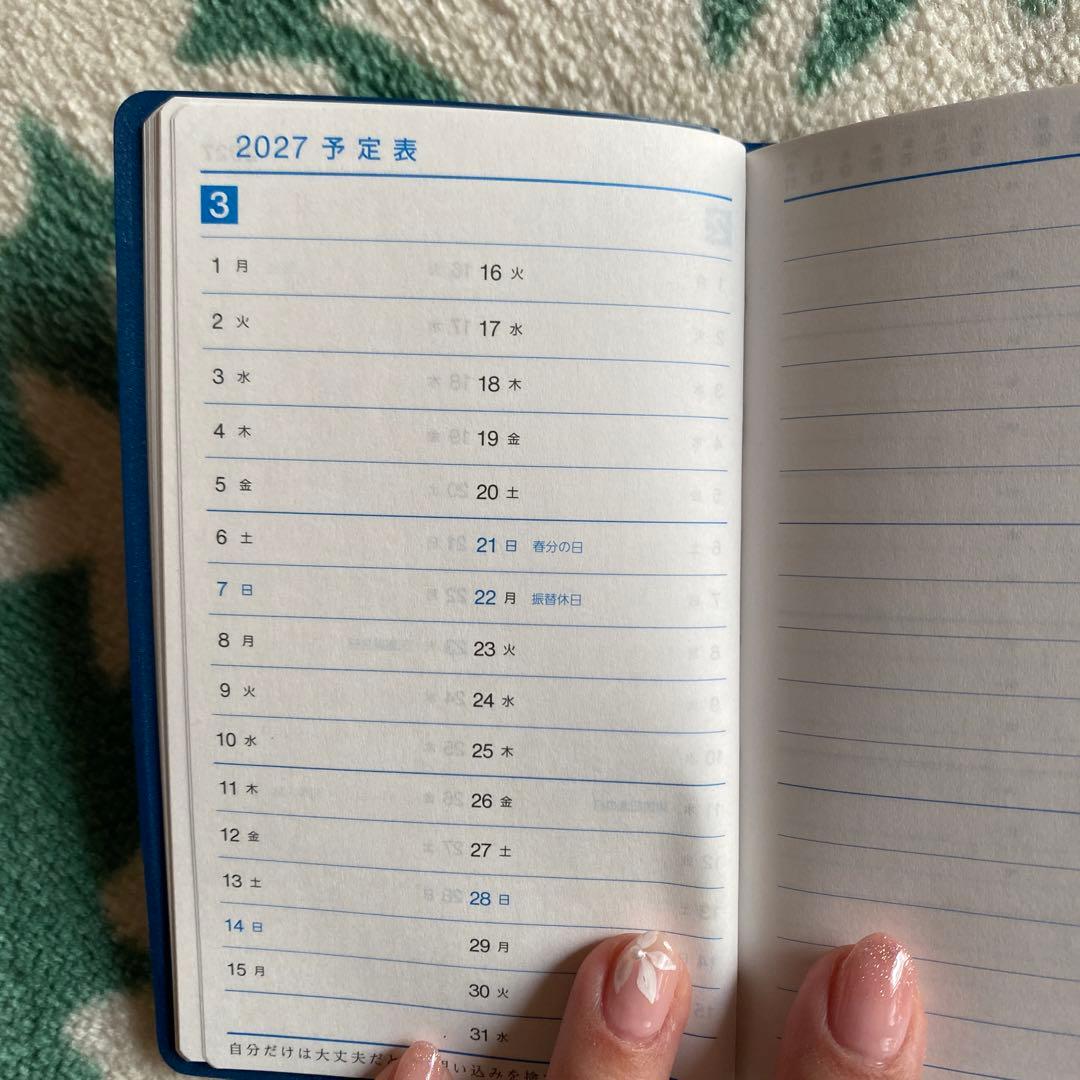 2027 予定表
3
1 月
2 火
3 水
4 木
5 金
6 土
7 日
8 月
9 火
10 水
11 木
12 金
13 土
14 日
15 月
16 火
17 水
18 木
19 金
20 土
21 日 春分の日
22 月 振替休日
23 火
24 水
25 木
26 金
27 土
28 日
29 月
30 火
31 水
自分だけは大丈夫だと い込みを